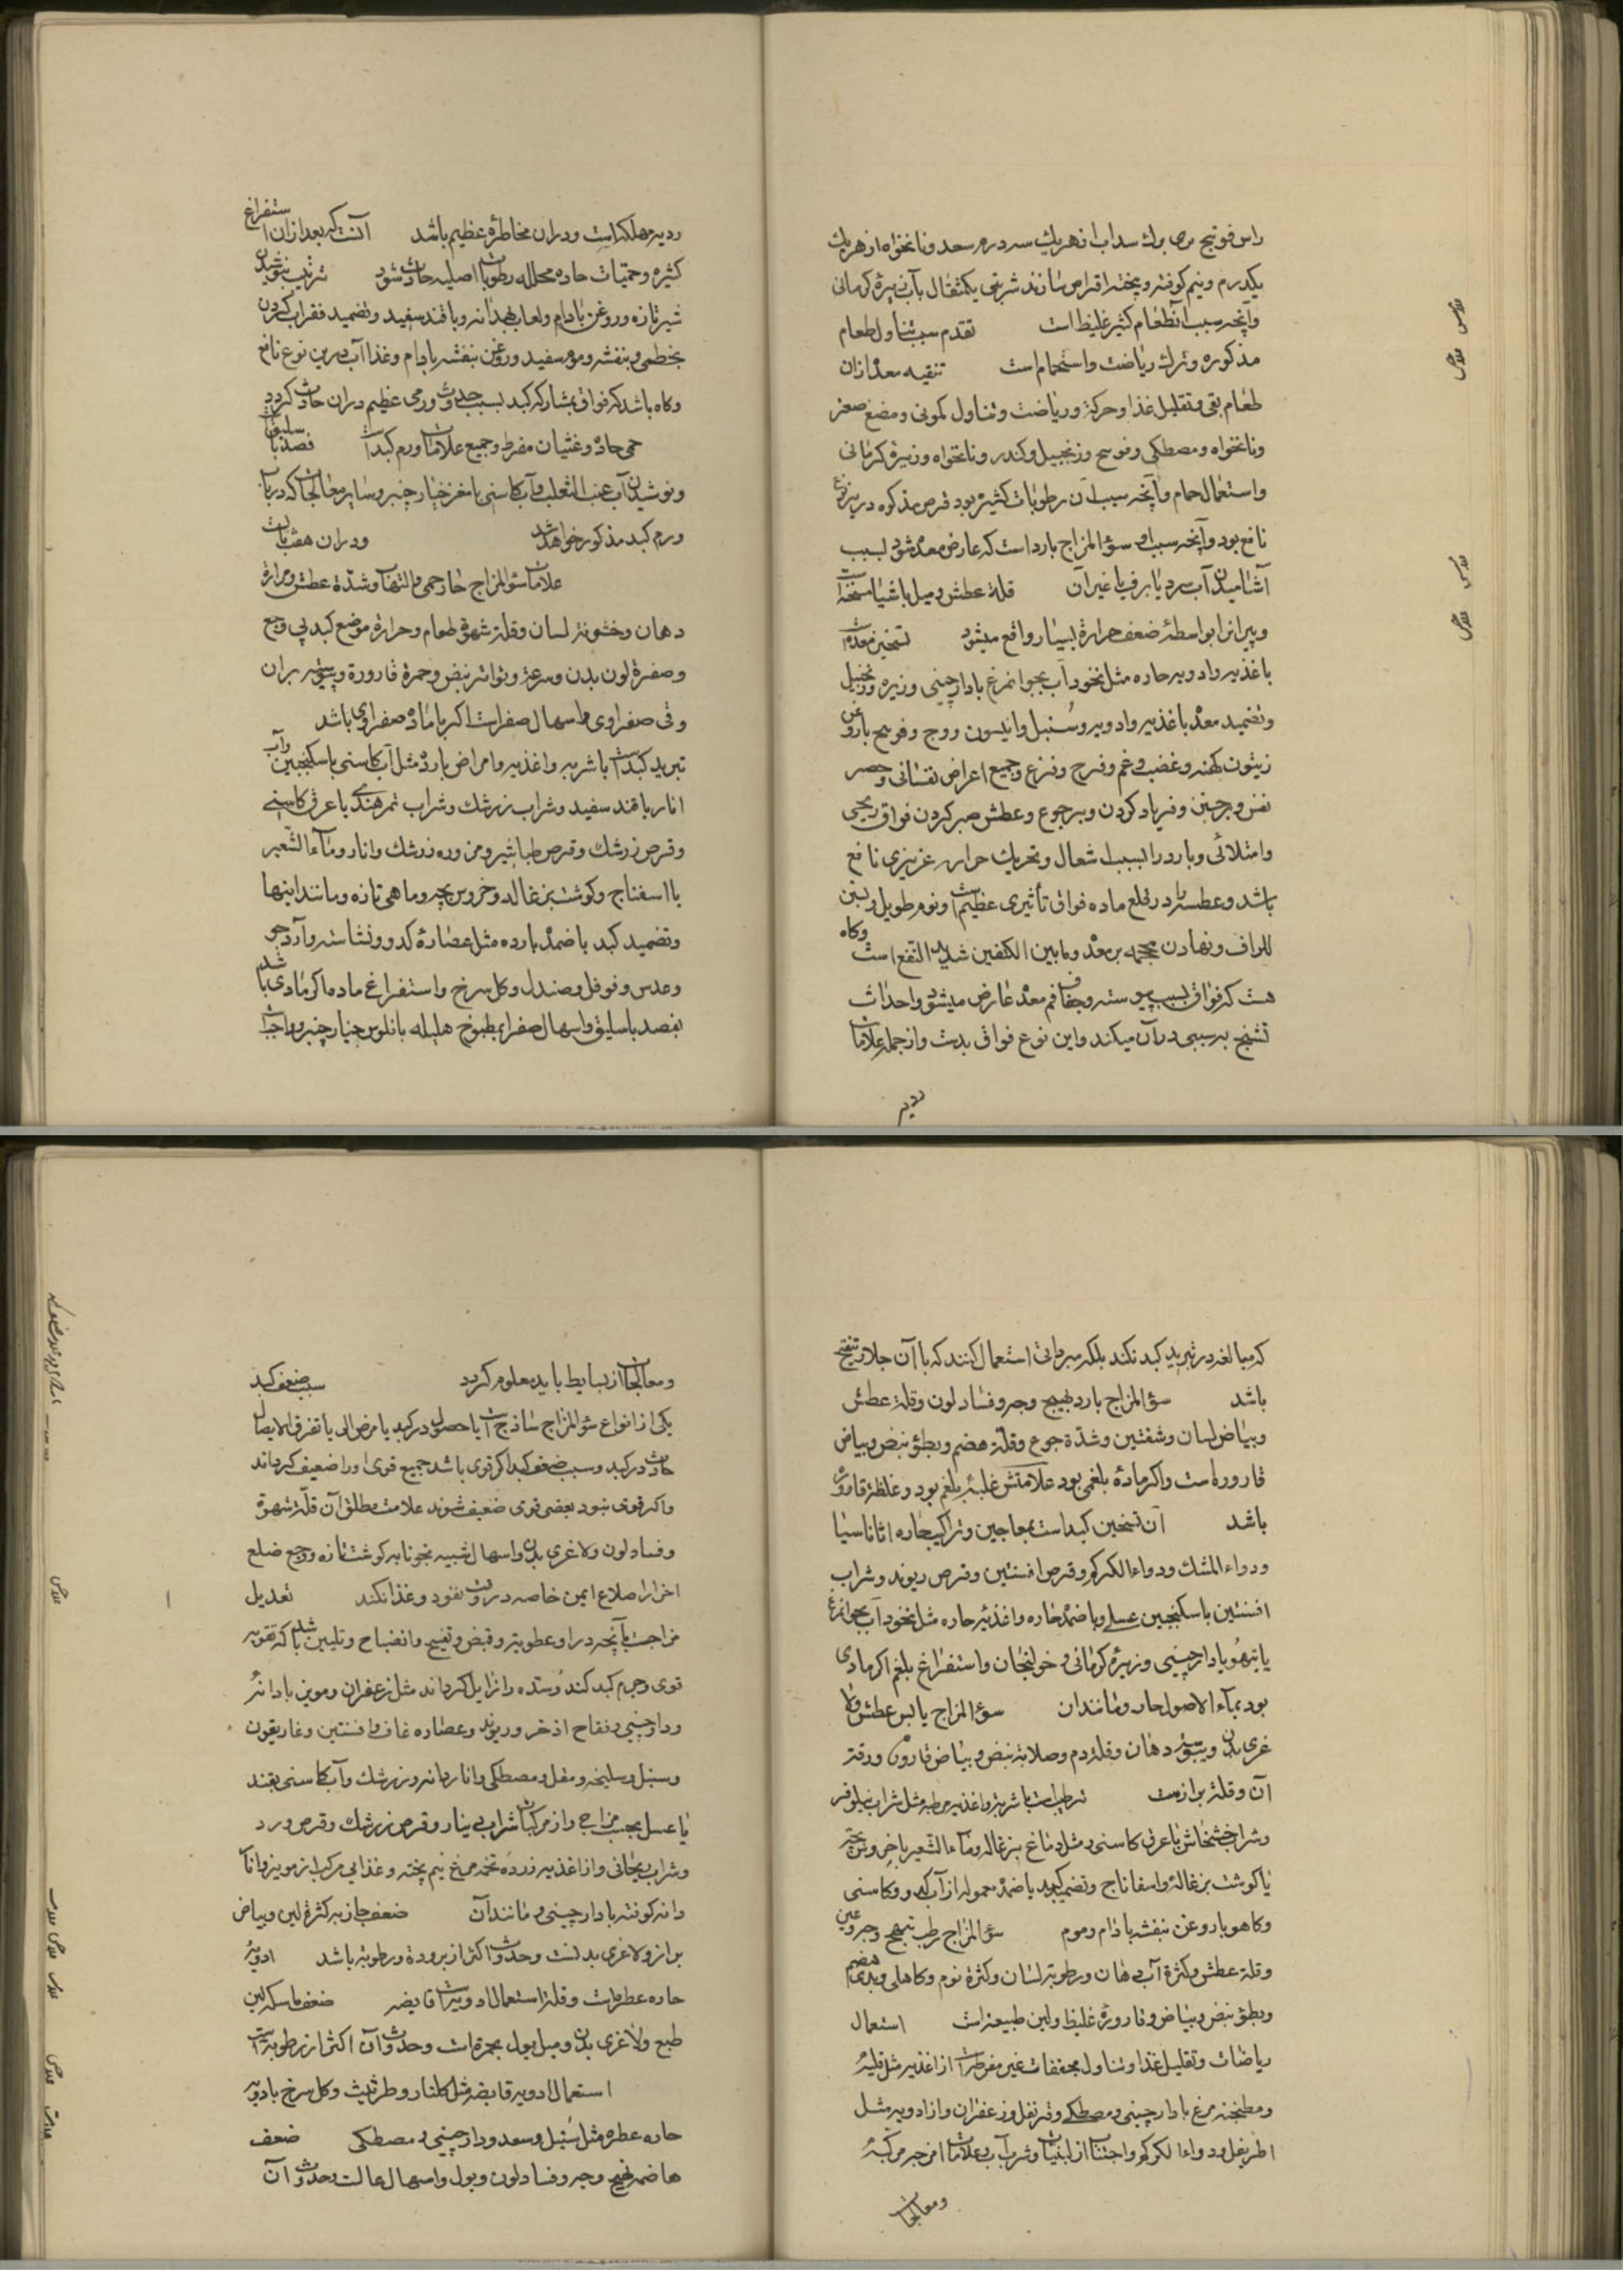 یکدرم ونیم کوفته وپخته اقراص سازند شربتی یکمثقال بآب زیرۀ کرمانی
وآنچه سبب آنطعام کثیر غلیظ است تقدم سبب تناول طعام
مذکوره وترک ریاضت واستحمام است تنقیه معده ازان
طعام بقی وتقلیل غذا وحرکة وریاضت وتناول کمونی ومضغ صعتر
ونانخواه ومصطکی وزنجبیل وکندر ونانخواه وزیرۀ کرمانی
واستعمال حمام وآنچه سبب آن رطوبات کثیره بود قرص مذکوره درین نوع
نافع بود وآنچه سبب او سؤالمزاج بارد است که عارض معده شود بسبب
آشامیدن آب سرد یا برف یا غیر آن قلة عطش ومیل باشیا مسخنه است
وپیرانرا بواسطۀ ضعف حرارة بسیار واقع میشود تسخین معده است
باغذیه وادویه حاره مثل نخودآب بجوانمرغ بادارچینی وزیره وزنجبیل
وتضمید معده باغذیه وادویه وسنبل وانیسون ووج باروغن
زیتون کهنه وغضب وغم وفرح وفزع وجمیع اعراض نفسانی وحصر
نفس وفریاد کردن وجوع وعطش صبر کردن فواق ریحی
وامتلائی وبارد را بسبب اشعال وتحریک حرارت غریزی نافع
باشد وعطسه را در قلع ماده فواق تأثیری عظیم است ونوم طویل وبستن
اطراف ونهادن محجمه بر معده ومابین الکتفین شدید النفع است وکاه
هست که فواق بسبب یبوسته وجفاف فم معده عارض میشود واحداث
تشنج یبسی در آن میکند واین نوع فواق بدست وازجمله علامات
ردیه
ردیه مهلکه است ودران مخاطرۀ عظیم باشد آنست که بعد ازان استفراغ
کثیره وحمیات حاده محلله رطوبات اصلیه حادث شود ترتیب بنوشیدن
شیر تازه وروغن بادام ولعاب بهدانه وباقند سفید وتضمید فقرات کردن
بخطمی وبنفشه وموم سفید وروغن بنفشه بادام وغذا آب درین نوع نافع
وکاه باشد که فواق بمشارکه کبد بسبب حدوث ورمی عظیم دران حادث کردد
حمی حاده وغثیان مفرط وجمیع علامات ورم کبد است فصد باسلیق است
ونوشیدن آب عنب الثعلب وآب کاسنی بامغز خیار چنبر وسایر معالجات که در باب
ورم کبد مذکور خواهد شد ودران هفت باب است
علامات سؤالمزاج حار حمی والتهاب وشدة عطش ومرارة
دهان وخشونة لسان وقلة شهوة طعام وحرارة موضع کبد بی وجع
وصفرة لون بدن وسرعة وتواتر نبض وحمرة قارورة ویبوسته براز
وقی صفراوی واسهال صفراست اکر باماده صفراوی باشد
تبرید کبد است باشربه واغذیه وامراض بارده مثل آب کاسنی باسکنجبین وآب
انار باقند سفید وشراب زرشک وشراب تمر هندی باعرق کاسنی
وقرص زرشک وقرص طباشیر ومزوره زرشک وانار وماء الشعیر
بااسفناج وکوشت بزغاله وخروس بچه وماهی تازه ومانند اینها
وتضمید کبد باضمده بارده مثل عصارۀ کدو ونشاسته وآرد جو
وعدس وفوفل وصندل وکل سرخ واستفراغ ماده اکر مادی باشد
بفصد باسلیق واسهال صفرا بمطبوخ هلیله بافلوس خیار چنبر وواجبست
که مبالغه در تبرید کبد نکند بلکه مبرداتی استعمال کنند که باآن جلا وتفتیح
باشد سؤالمزاج بارد تهیج وجه وفساد لون وقلة عطش
وبیاض لسان وشفتین وشدة جوع وقلة هضم وبطؤ نبض وبیاض
قاروره است واکر مادۀ بلغمی بود علامتش غلبۀ بلغم بود وغلظة قاروره
باشد آن تسخین کبد است بمعاجین وتراکیب حاره اثاناسیا
ودواء المشک ودواء الکرکم وقرص افسنتین وقرص ریوند وشراب
افسنتین باسکنجبین عسلی وباضمده حاره واغذیۀ حاره مثل نخودآب بجوانمرغ
یاتیهو بادارچینی وزیرۀ کرمانی وخولنجان واستفراغ بلغم اکر مادی
بود بماء الاصول حار ومانند ان سؤالمزاج یابس عطش ولا
غری بدن ویبوسته دهان وقلة دم وصلابة نبض وبیاض قاروره ورقة
آن وقلة براز است ترطیب است باشربه واغذیه مرطبه مثل شراب نیلوفر
وشراب خشخاش باعرق کاسنی ومثل دماغ بزغاله وماء الشعیر باخروس بچه
یاکوشت بزغاله واسفاناج وتضمید کبد باضمده معموله از آب کدو وکاسنی
وکاهو باروغن بنفشه بادام وموم سؤالمزاج رطب تهیج وجه وعین
وقلة عطش وکثرة آب دهان ورطوبة لسان وکثرة نوم وکاهلی وبدی هضم
وبطؤ نبض وبیاض وقارورۀ غلیظ ولین طبیعة است استعمال
ریاضات وتقلیل غذا وتناول مجففات غیر مفرطه است از اغذیه مثل قلیۀ
ومطنجنه مرغ بادارچینی ومصطکی وقرنفل وزعفران واز ادویه مثل
اطریفل ودواء الکرکم واجتناب از لبنیات وشرب آب وعلامات امزجه مرکبۀ
ومعالجات
ومعالجات از بسایط باید معلوم کردد سبب ضعف کبد
یکی از انواع سؤالمزاج ساذج است یا حصول در کبد یا مرض الی یا تفرق الاتصال
حادث در کبد وسبب ضعف کبد اکر قوی باشد جمیع قوی اورا ضعیف کرداند
واکر قوی نبود بعضی قوی ضعیف شوند علامت مطلق آن قلة شهوة
وفساد لون ولاغری بدن واسهال شبیه بخونابه کوشت تازه ووجع ضلع
اخر از اضلاع ایمن خاصه در وقت نفود وغذا نکند تعدیل
مزاجست بآنچه در او عطریته وقبض وتفتیح وانضاج وتلیین باشد که تقویه
قوی وجرم کبد کند وسده را زایل کرداند مثل زعفران ومویز بادانه
ودارچینی وفقاح اذخر وریوند وعصاره غافت وافسنتین وغاریقون
وسنبل وسلیخه ومقل ومصطکی واناردانه وزرشک وآب کاسنی بقند
یا عسل بحسب مزاجی واز مرکبات شراب دینار وقرص زرشک وقرص ورد
وشراب ریحانی واز اغذیه زرده تخم مرغ نیم پخته وغذایی مرکب از مویز وانار
دانه کوفته بادارچینی ومانند آن ضعف جاذبه کثرة لین وبیاض
براز ولاغری بدنست وحدوث اکثر از برودة ورطوبة باشد ادویۀ
حاره عطره است وقلة استعمال ادویه قابضه ضعف ماسکه لین
طبع ولاغری بدن ومیل بول بحمرة است وحدوث آن اکثر از رطوبة است
استعمال ادویه قابضه مثل کلنار وطراثیث وکل سرخ بادویه
حاره عطره مثل سنبل وسعد ودارچینی ومصطکی ضعف
هاضمه تهیج وجه وفساد لون وبول واسهال غالب وحدوث آن